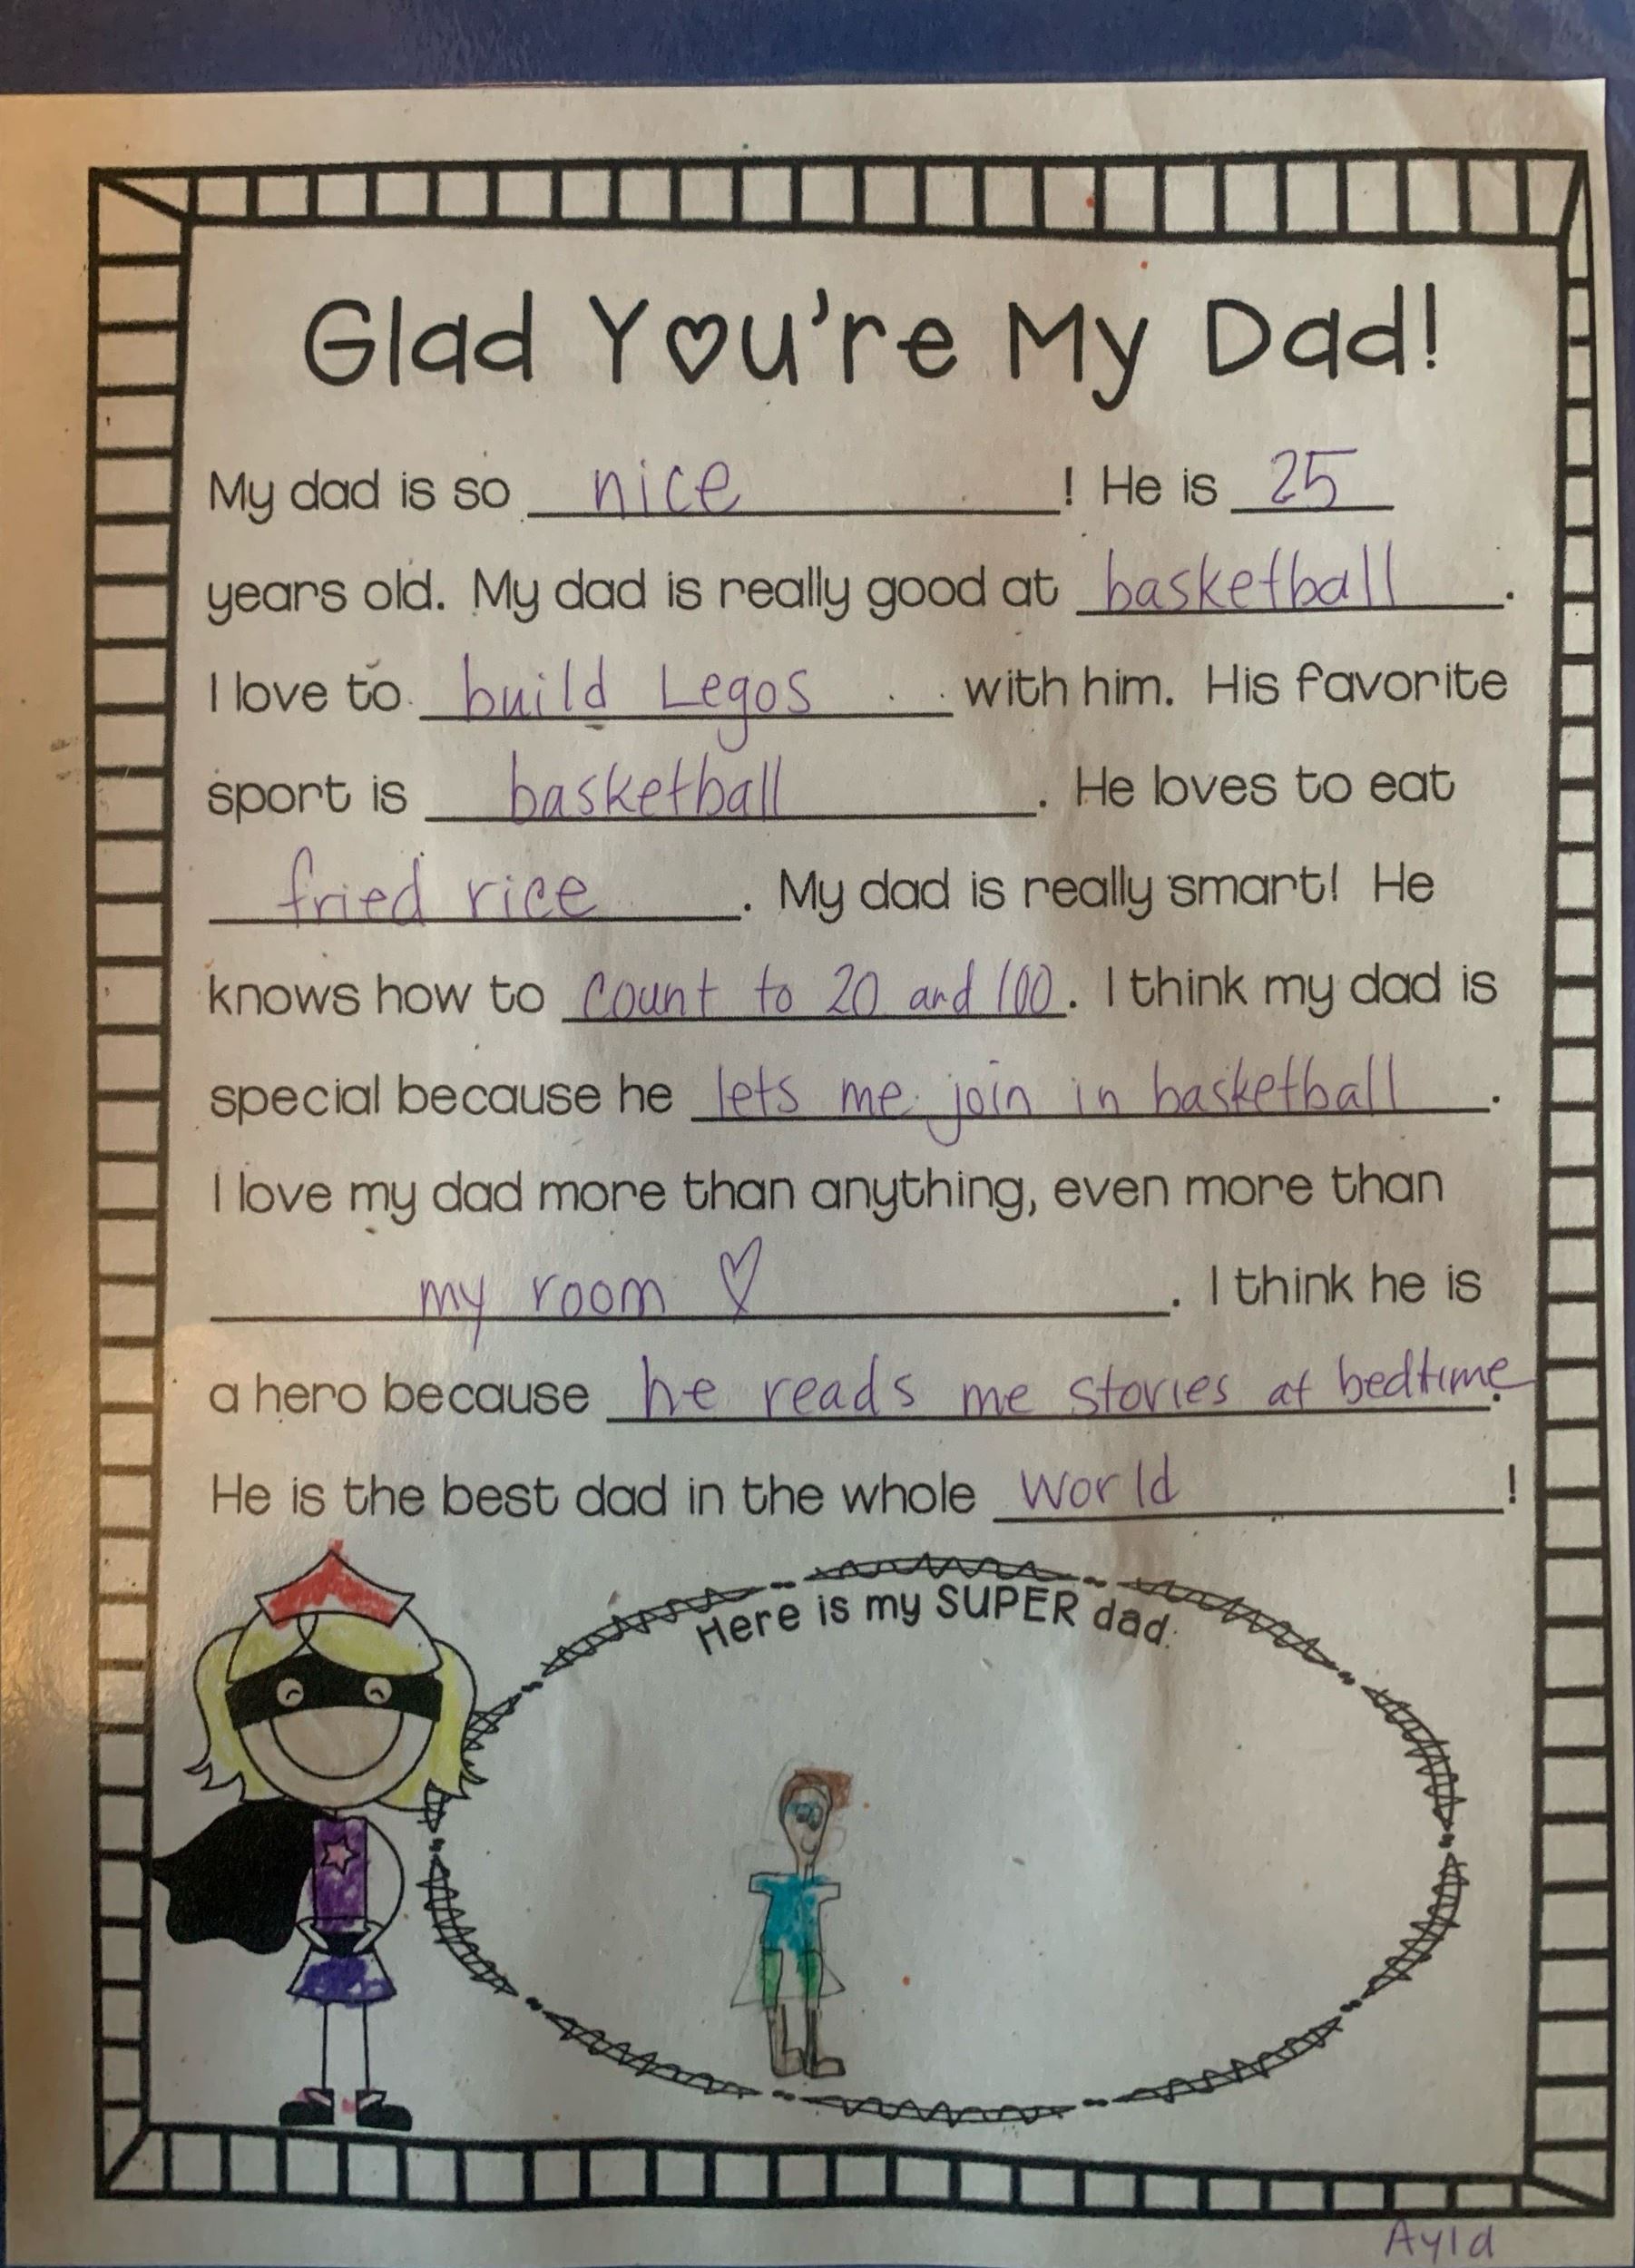 Glad You're My Dad!
My dad is so nice! He is 25
years old. My dad is really good at basketball.
I love to build Legos with him. His favorite
sport is basketball. He loves to eat
fried rice. My dad is really smart! He
knows how to count to 20 and 100. I think my dad is
special because he lets me join in basketball.
I love my dad more than anything, even more than
my room ♡. I think he is
a hero because he reads me stories at bedtime.
He is the best dad in the whole world!
Here is my SUPER dad.
Ayla